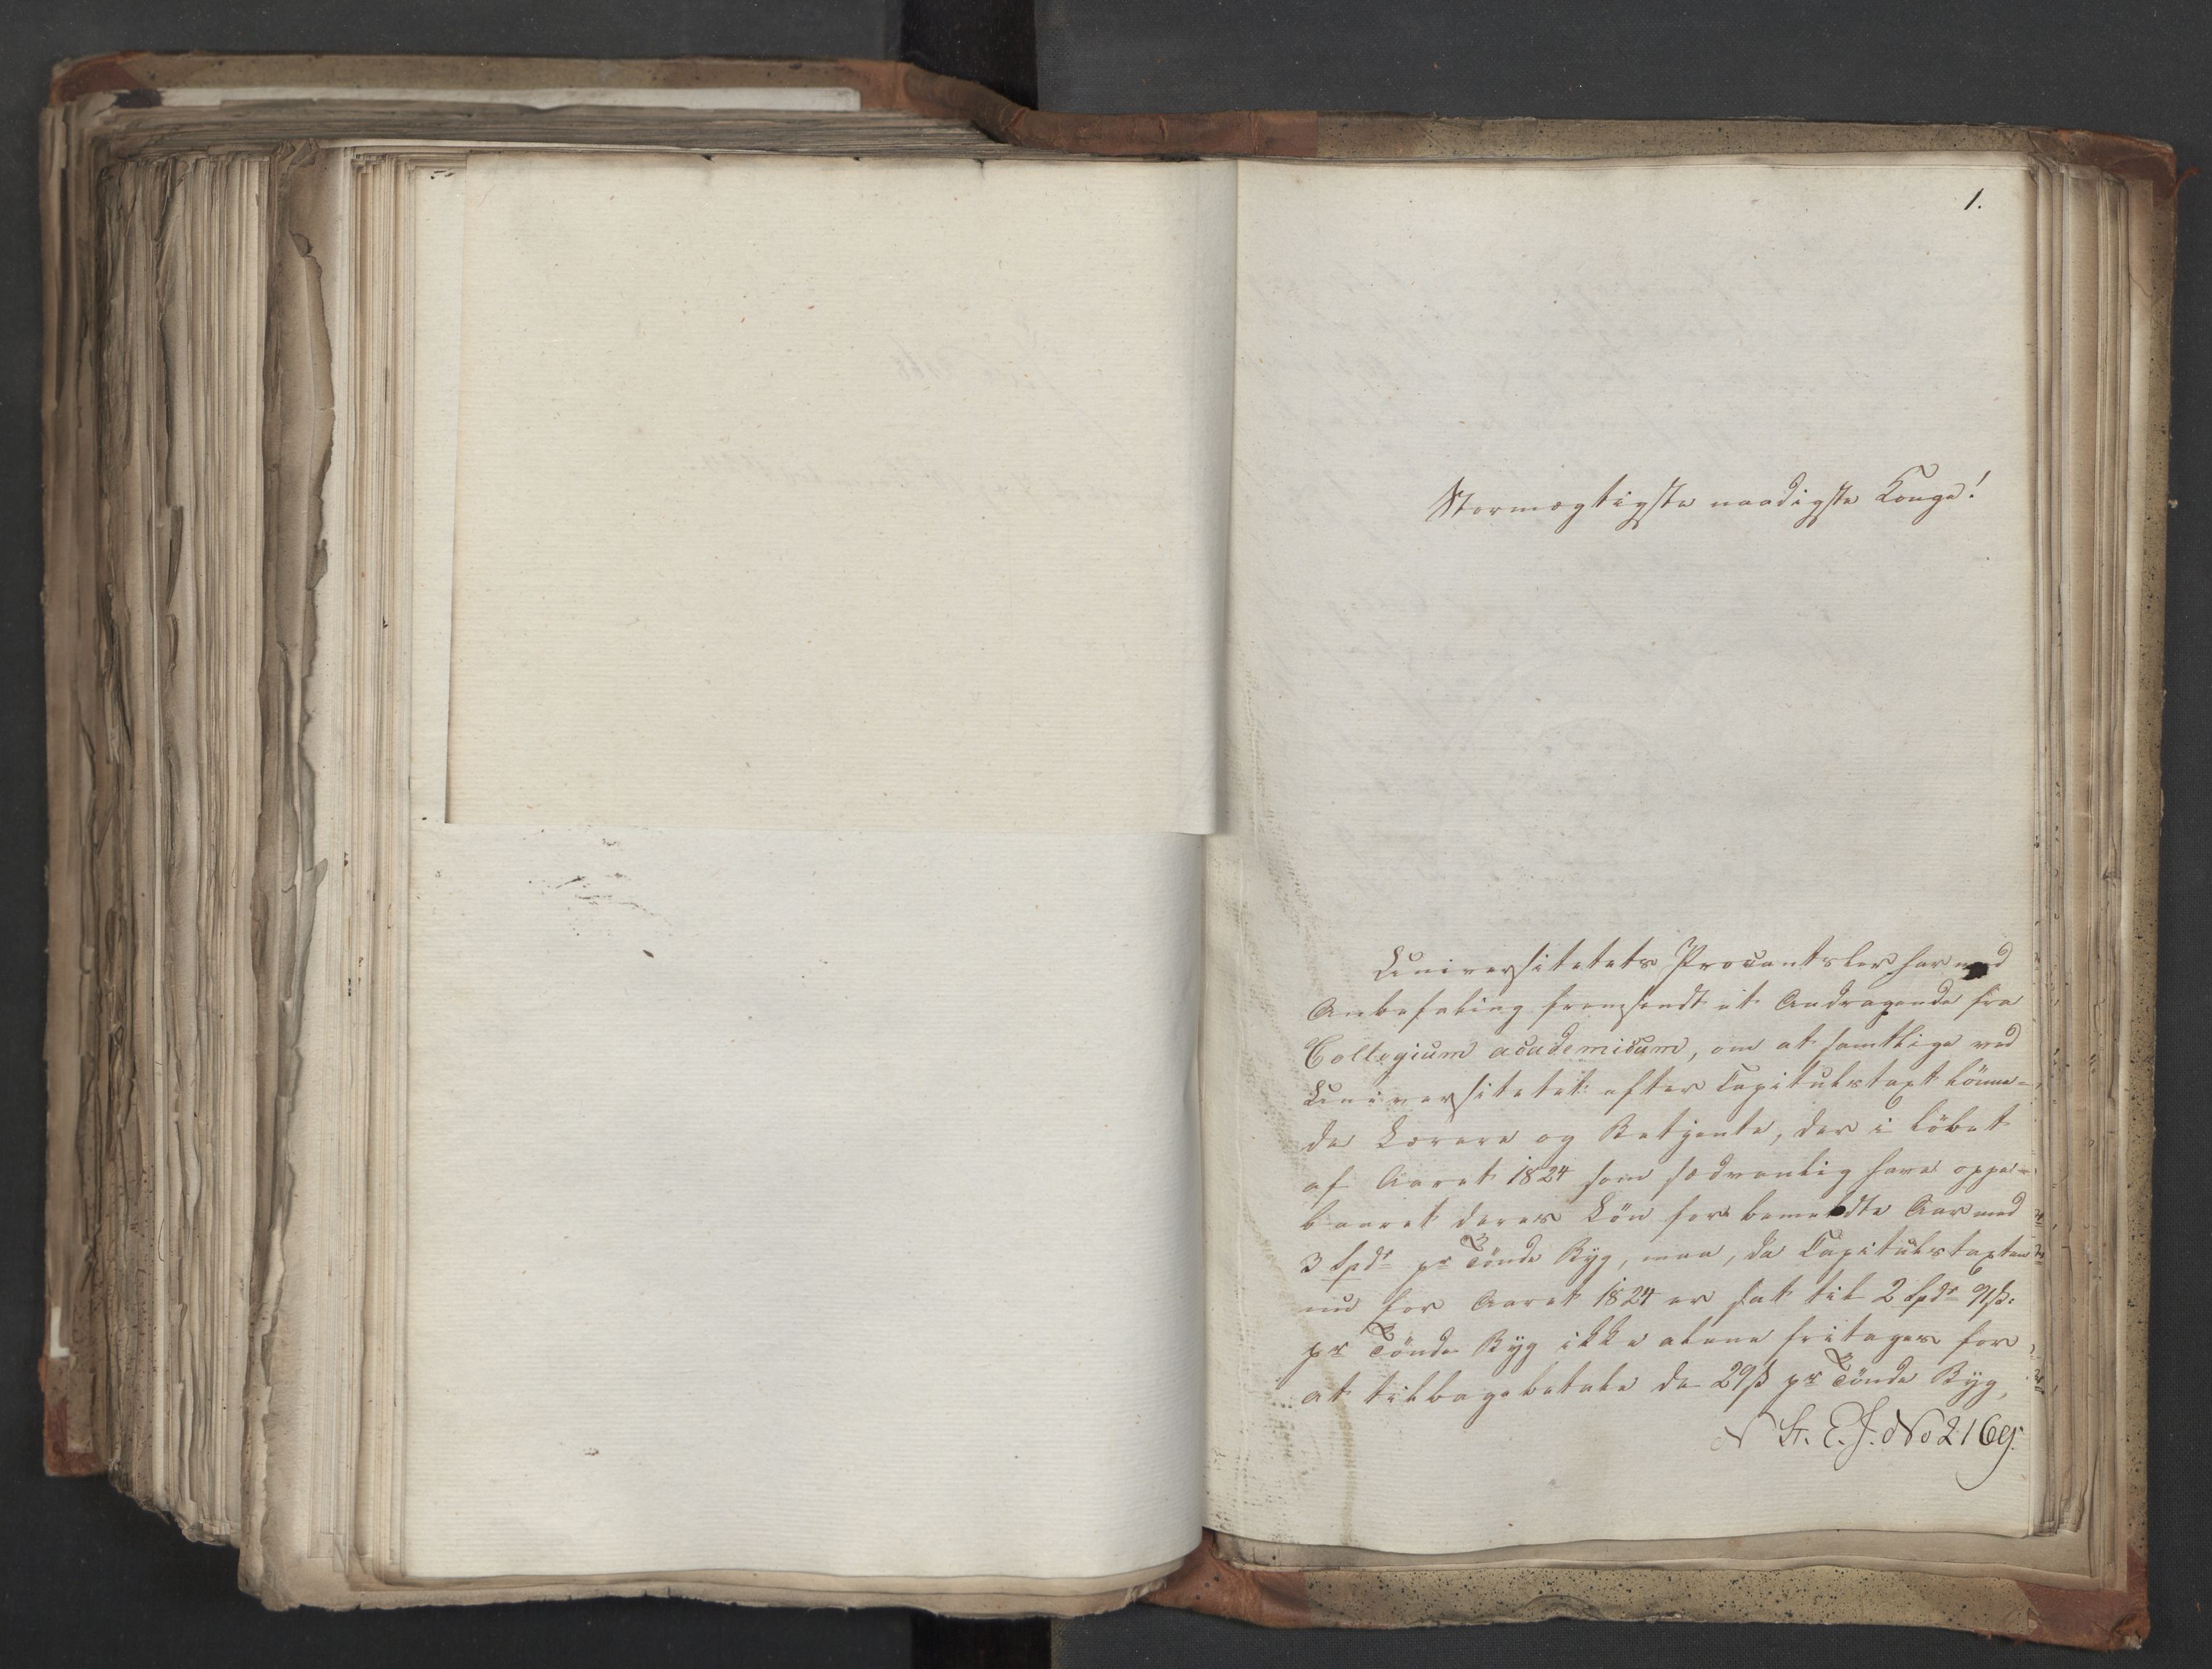 1.
Stormægtigste naadigste Konge!
Universitetets Procantsler har med
Anbefaling fremsendt et Andragende fra
Collegium academicum, om at samtlige ved
Universitetet efter Capitulstaxt lönne-
de Lærere og Betjente, der i Löbet
af Aaret 1824 som sædvanlig have oppe-
baaret deres Lön for bemeldte Aar med
3 Spdr pr Tönde Byg, maa, da Capitulstaxten
nu for Aaret 1824 er sat til 2 Spdr 91ß.
pr Tönde Byg ikke alene fritages for
at tilbagebetale de 29ß pr Tönde Byg,
St. E. J. No 2169.